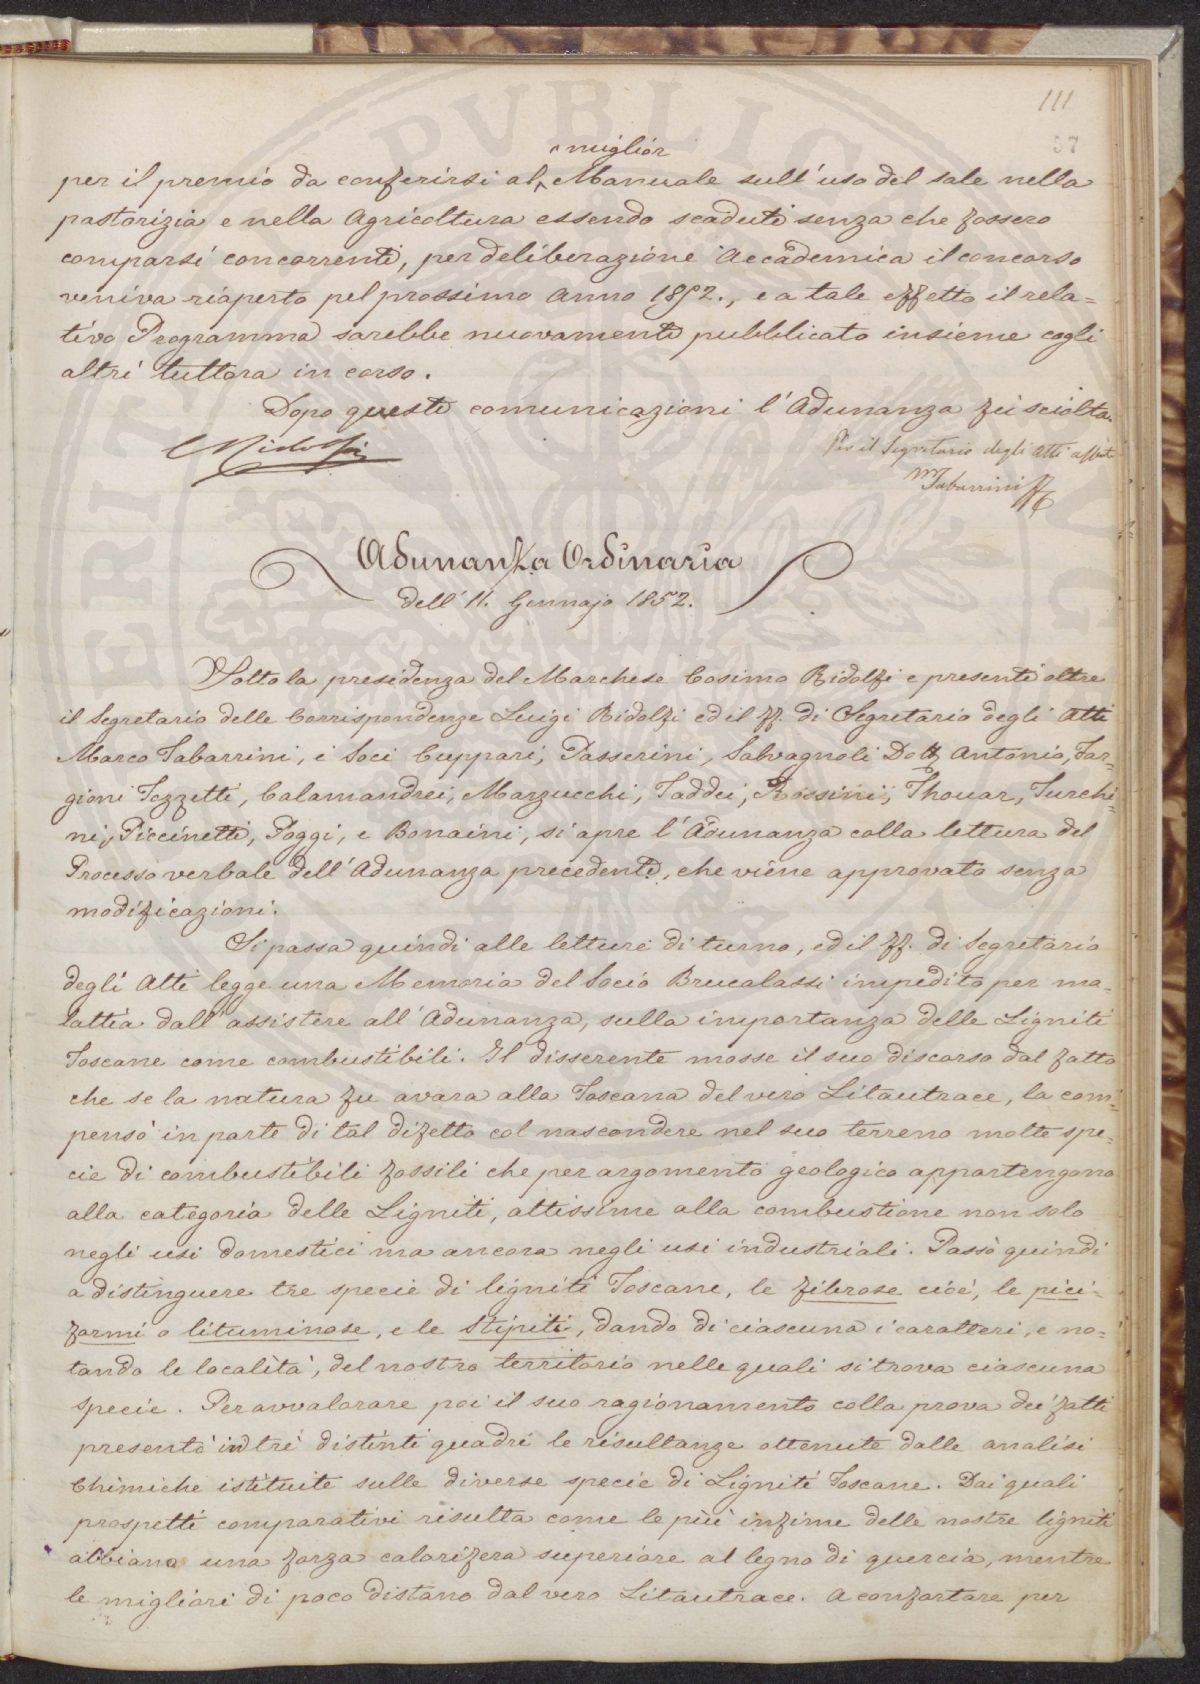 111
57
miglior
per il premio da conferirsi al Manuale sull'uso del sale nella
pastorizia e nella Agricoltura essendo scaduti senza che fossero
comparsi concorrenti, per deliberazione Accademica il concorso
veniva riaperto pel prossimo Anno 1852., e a tale effetto il rela=
tivo Programma sarebbe nuovamente pubblicato insieme cogli
altri tuttora in corso.
Dopo queste comunicazioni l'Adunanza fu sciolta.
C Ridolfi
Per il Segretario degli Atti assente
M Tabarrini
Adunanza Ordinaria
dell' 11. Gennajo 1852.
Sotto la presidenza del Marchese Cosimo Ridolfi e presenti oltre
il Segretario delle Corrispondenze Luigi Ridolfi ed il ff. di Segretario degli Atti
Marco Tabarrini, i Soci Cuppari, Passerini, Salvagnoli Dott Antonio, Tar=
gioni Tozzetti, Calamandrei, Marzucchi, Taddei, Rossini, Thouar, Turchi=
ni, Piccinetti, Poggi, e Bonaini, si apre l'Adunanza colla lettura del
Processo verbale dell'Adunanza precedente, che viene approvato senza
modificazioni.
Si passa quindi alle letture di turno, ed il ff. di Segretario
degli Atti legge una Memoria del Socio Brucalassi impedito per ma=
lattia dall'assistere all'Adunanza, sulla importanza delle Ligniti
Toscane come combustibili. Il disserente mosse il suo discorso dal fatto
che se la natura fu avara alla Toscana del vero Litantrace, la com=
pensò in parte di tal difetto col nascondere nel suo terreno molte spe=
cie di combustibili fossili che per argomento geologico appartengono
alla categoria delle Ligniti, attissime alla combustione non solo
negli usi domestici ma ancora negli usi industriali. Passò quindi
a distinguere tre specie di ligniti Toscane, le fibrose cioè, le pici=
formi o bituminose, e le Stipiti, dando di ciascuna i caratteri, e no=
tando le località, del nostro territorio nelle quali si trova ciascuna
specie. Per avvalorare poi il suo ragionamento colla prova dei fatti
presentò in tre distinti quadri le risultanze ottenute dalle analisi
Chimiche istituite sulle diverse specie di Ligniti Toscane. Dai quali
prospetti comparativi risulta come le più infime delle nostre ligniti
abbiano una forza calorifera superiore al legno di quercia, mentre
le migliori di poco distano dal vero Litantrace. A confortare per